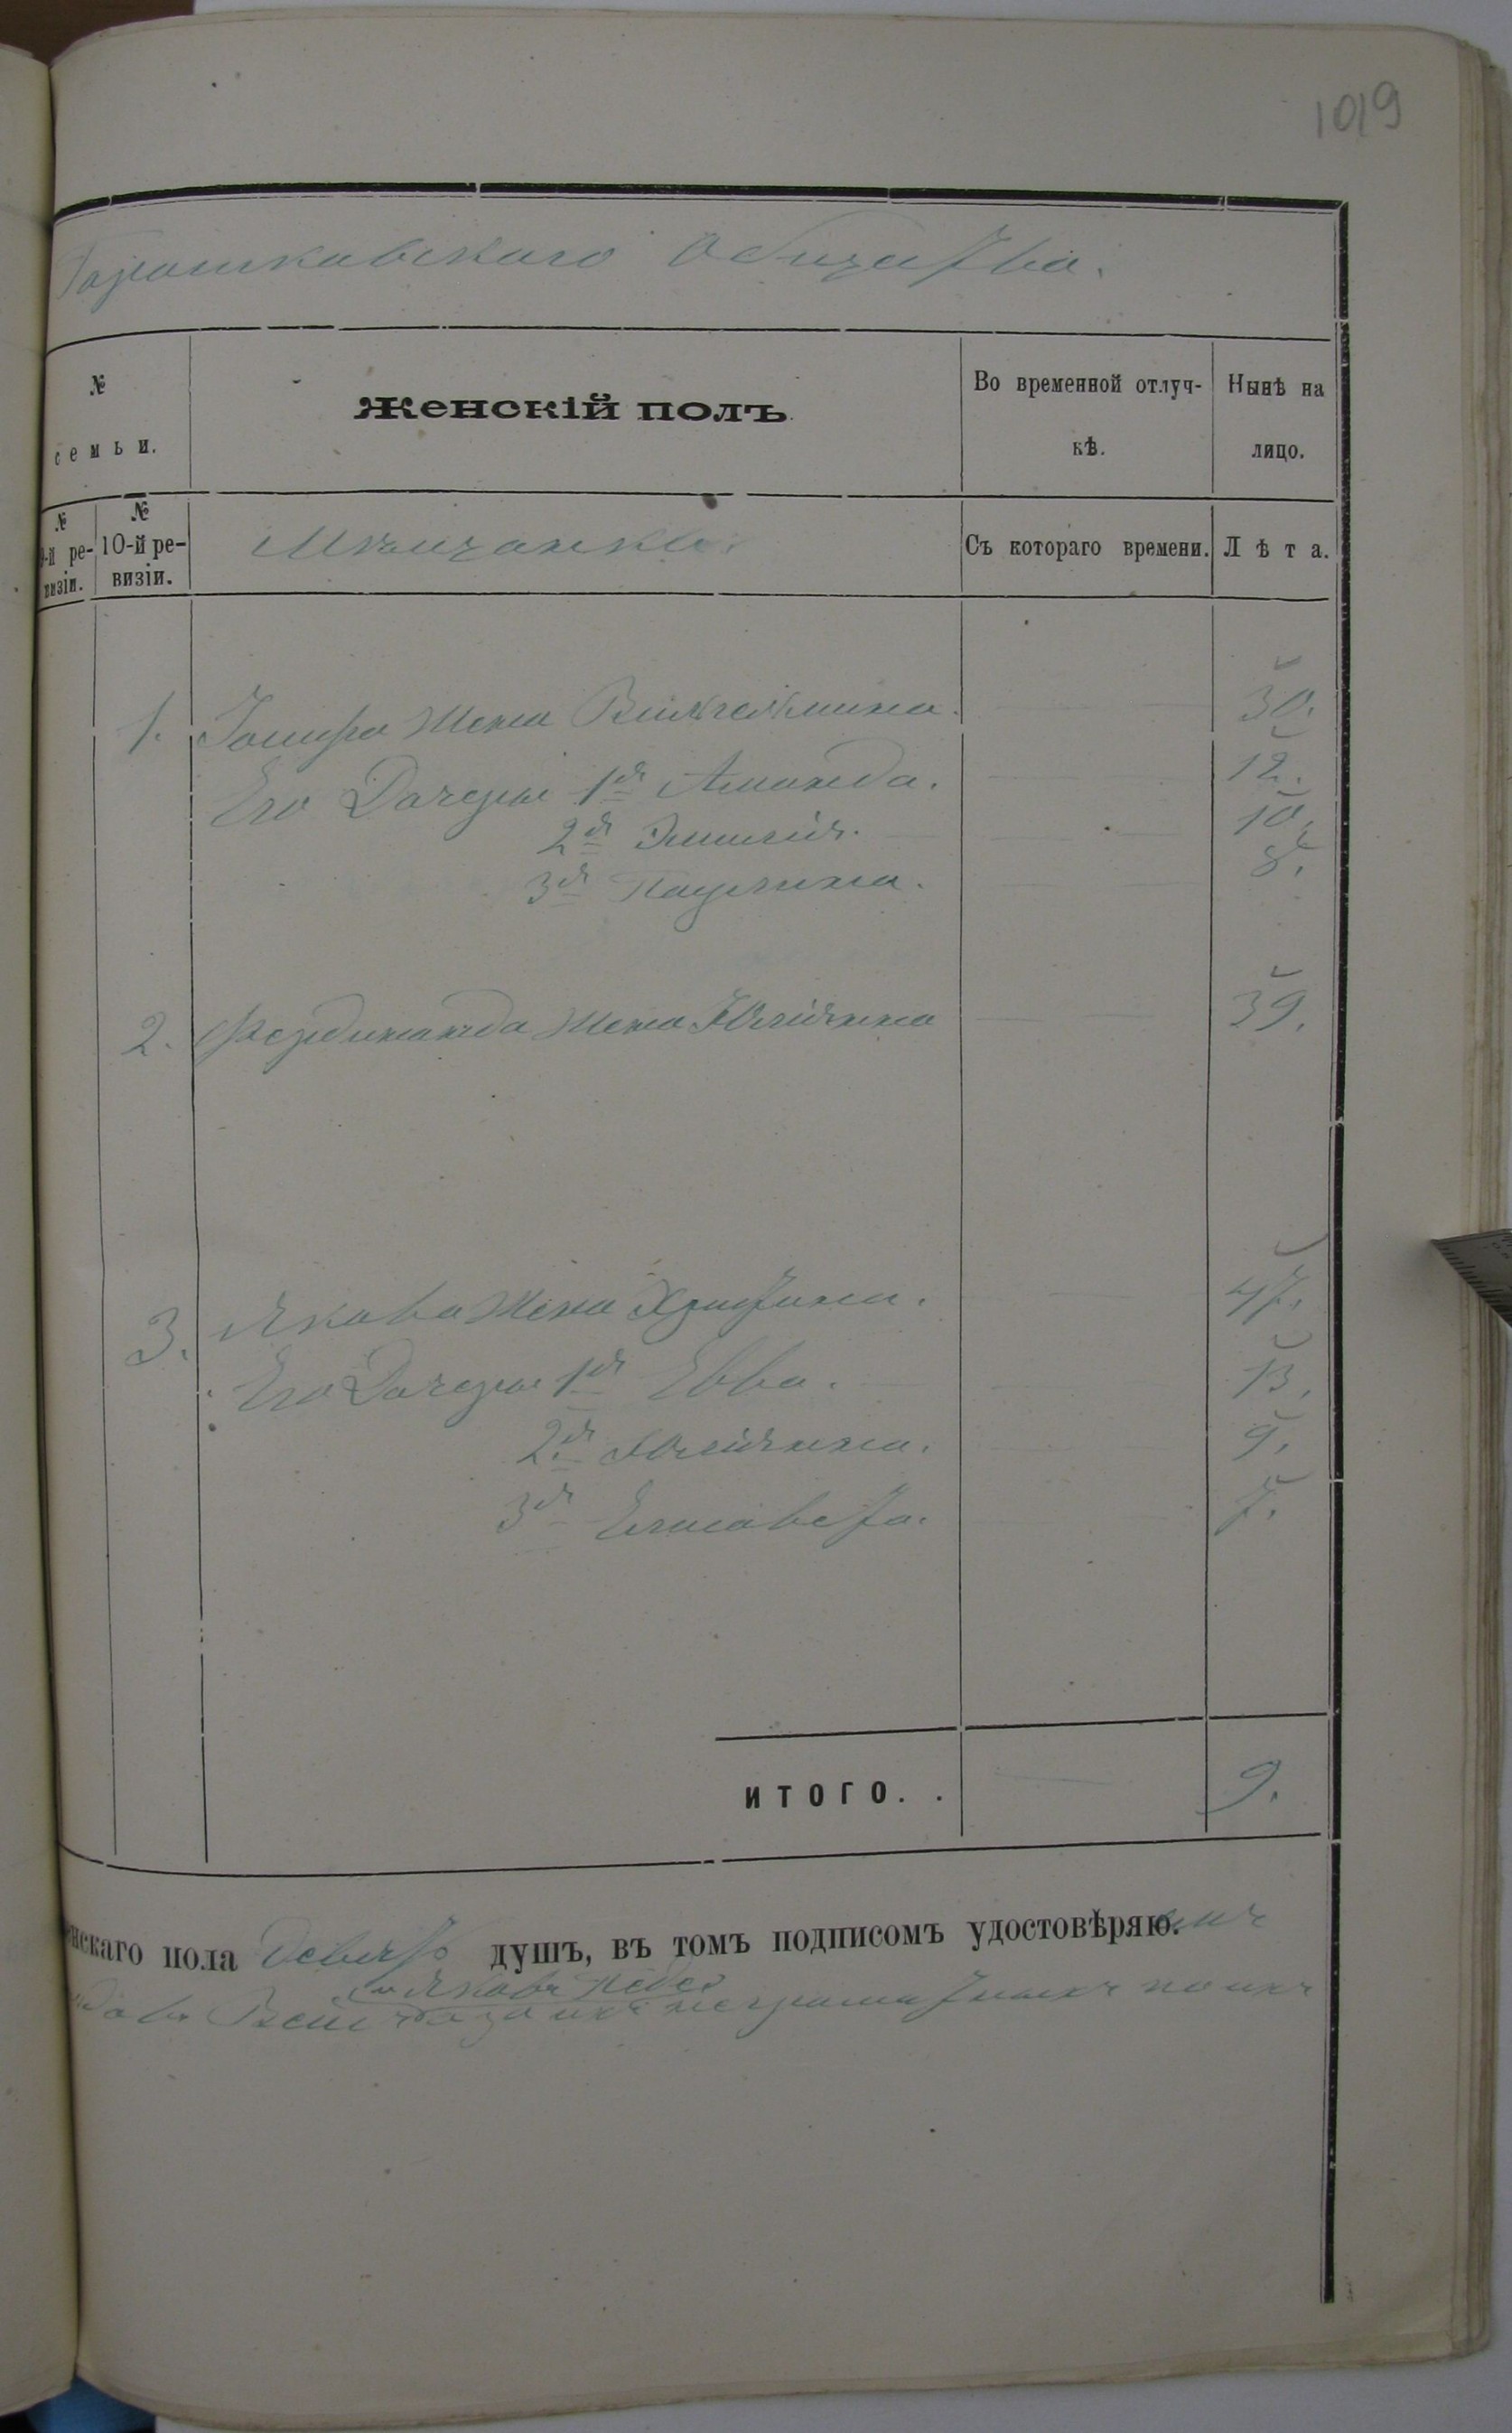 1019
Горошковскаго Общества.
№ семьи.
Женскій полъ.
Во временной отлучкѣ.
Нынѣ на лицо.
№ 9-й ревизіи.
№ 10-й ревизіи.
Мѣщанки.
Съ котораго времени.
Лѣта.
1. жена Вильгельмина. 30.
Его Дочеры 1я Аманда. 12.
2я Эмилія. 10.
3я Паулина. 8.
2. Фердинанда жена Юліянна 39.
3. Якова жена Христина. 47.
Его Дочеры 1я Евва. 13.
2я Юліянна. 9.
3я Елисавета. 7.
ИТОГО. . 9.
енскаго пола Девять душъ, въ томъ подписомъ удостовѣряю.
Яковъ
неграматныхъ по ихъ